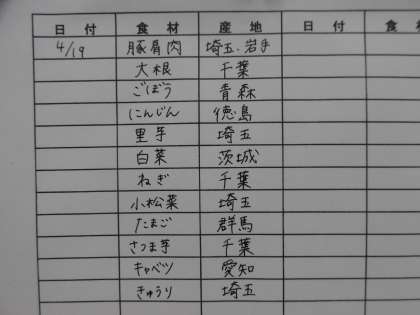 日 付 食 材 産 地 日 付 食
4/19 豚肩肉 埼玉.岩手
大根 千葉
ごぼう 青森
にんじん 徳島
里芋 埼玉
白菜 茨城
ねぎ 千葉
小松菜 埼玉
たまご 群馬
さつま芋 千葉
キャベツ 愛知
きゅうり 埼玉